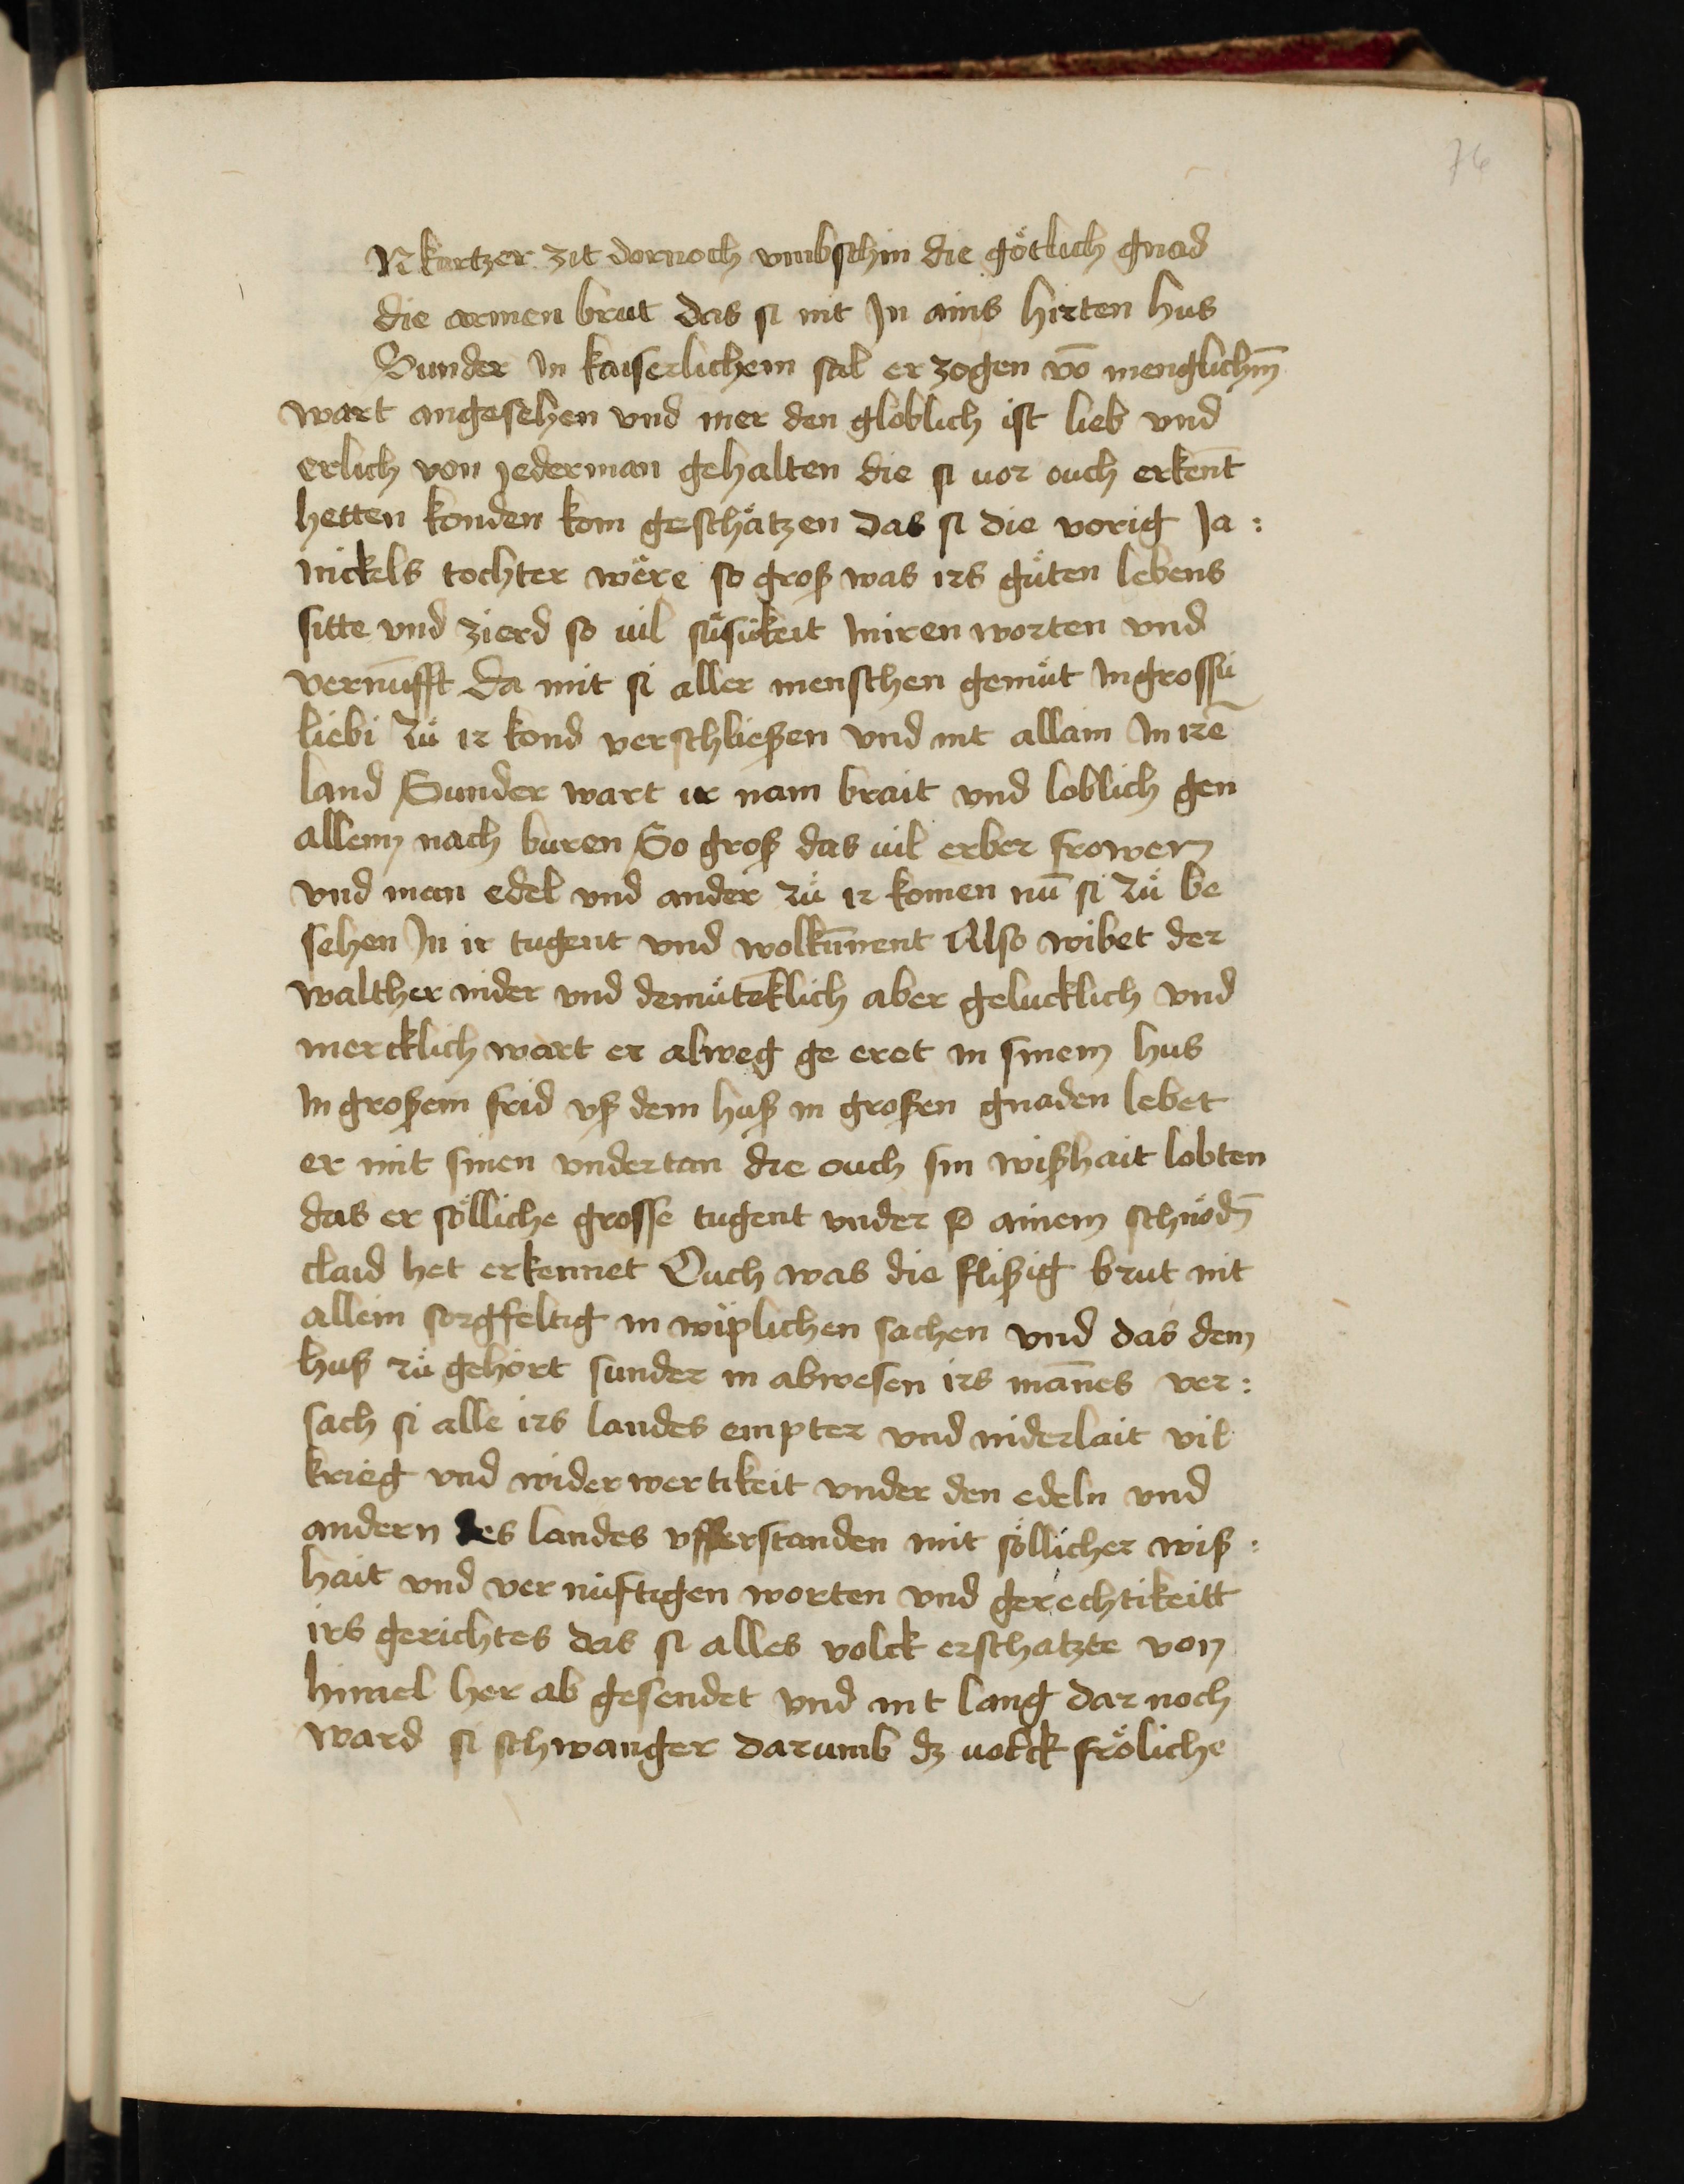 76
N kurtzer zit dornoch vmbschin die götlich gnad
die armen brut das si nit Jn ains hirten hus
Sunder in kaiserlichem sal er zogen vō menglichm̄
wart angesehen vnd mer den globlich ist lieb vnd
erlich von jederman gehalten die si vor ouch erkent
hetten konden kom geschätzen das si die vorig Ja :
nickels tochter wëre so groß was irs gůten lebens
sitte vnd zierd so uil süsickeit in iren worten vnd
vernūfft da mit si aller menschen gemüt in grossū
liebi zů ir kond verschließen vnd nit allain in irē
land Sunder wart ir nam brait vnd loblich gen
allem nach buren So groß das uil erber frowen
vnd man edel vnd ander zů ir komen nū si zů be
sehen Jn ir tugent vnd wolkūnent Also wibet der
walther nider vnd demüteklich aber gelucklich vnd
mercklich wart er alweg ge eret in sinem hus
in großem frid vß dem huß in großen gnaden lebet
er mit sinen vndertan die ouch sin wißhait lobten
das er sölliche grosse tugent vnder so ainem schnödn̄
claid het erkennet Ouch was die flißig brut nit
allein sorgfeltig in wiplichen sachen vnd das dem
huß zů gehört sunder in abwesen irs mānes ver :
sach si alle irs landes empter vnd niderlait vil
krieg vnd widerwertikeit vnder den edeln vnd
andern des landes vfferstanden mit söllicher wiß :
hait vnd ver nüftigen worten vnd gerechtikeitt
irs gerichtes das si alles volck erschatzte von
himel her ab gesendet vnd nit lang dar noch
ward si schwanger darumb dz uolck fröliche